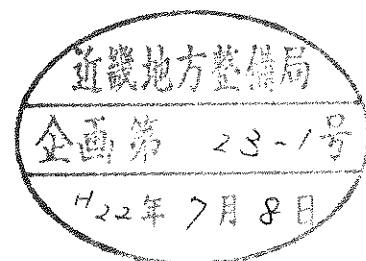 近畿地方整備局
企画第 23-1号
H22年7月8日